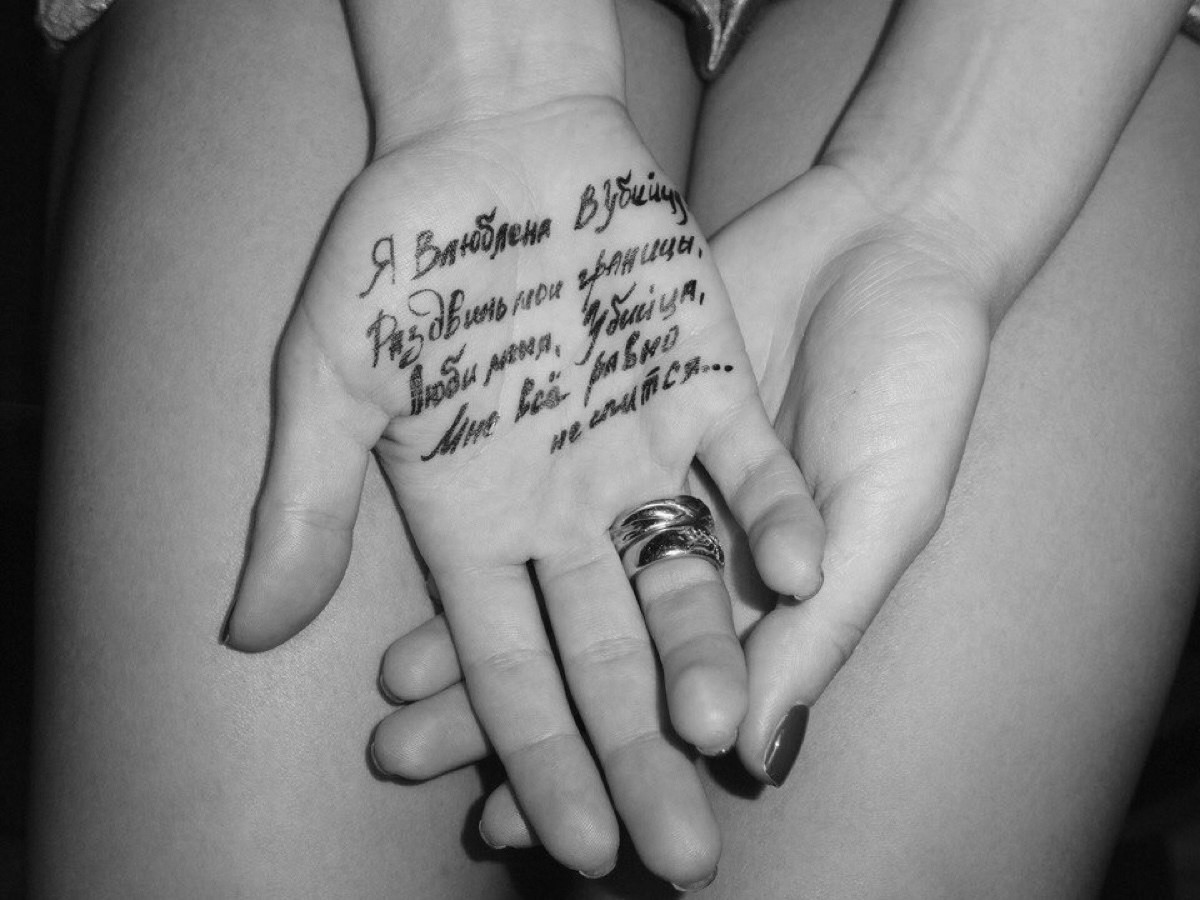 Я Влюблена В Убийцу
Раздвинь мои границы,
Люби меня, Убийца,
Мне всё равно
не спится...